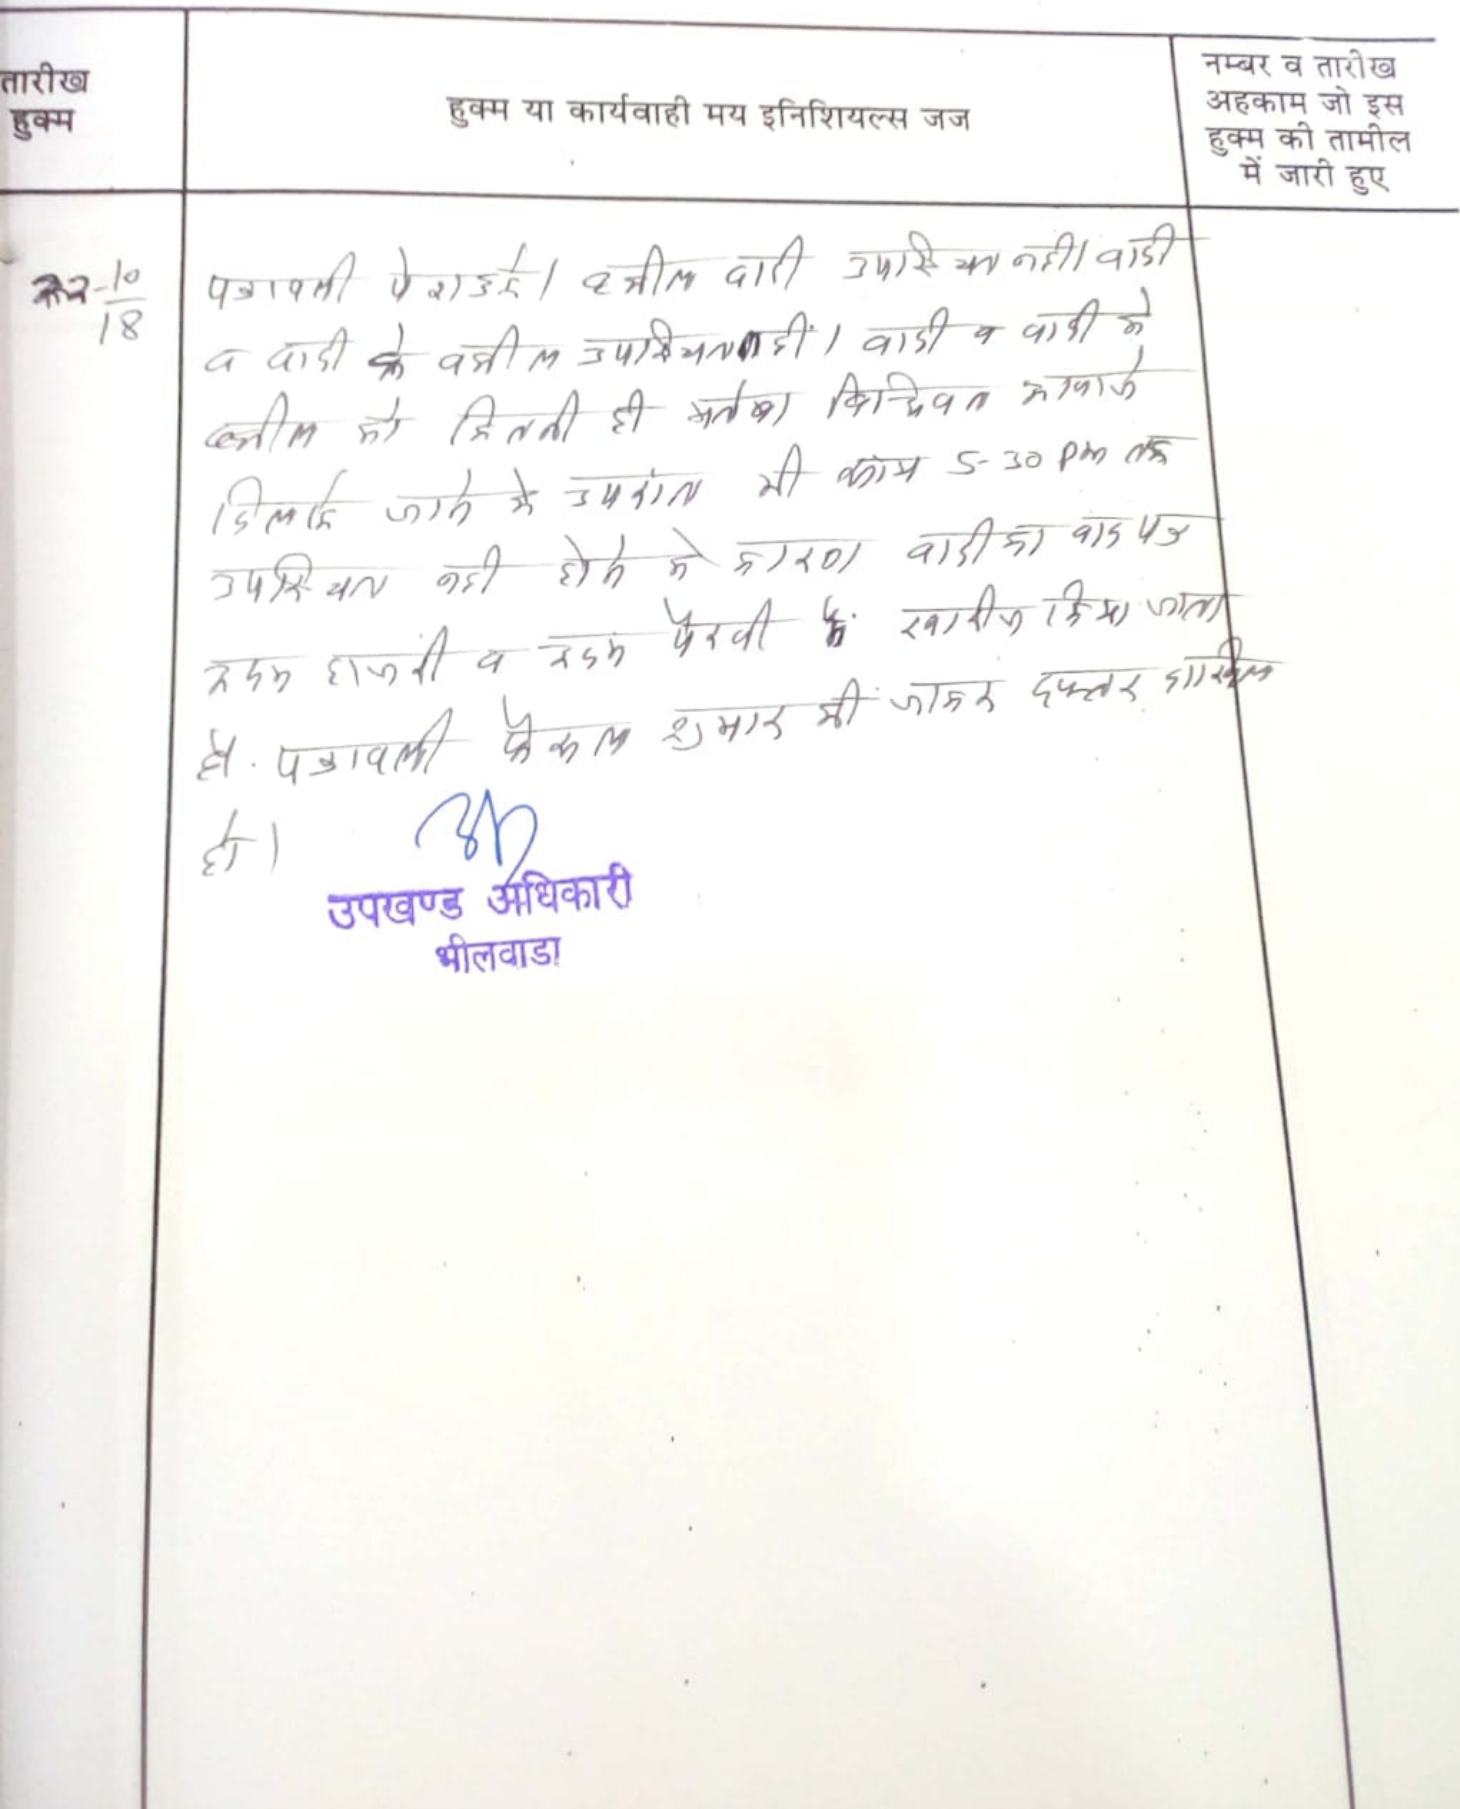 तारीख
हुक्म
हुक्म या कार्यवाही मय इनिशियल्स जज
नम्बर व तारीख
अहकाम जो इस
हुक्म की तामील
में जारी हुए
10
18
पत्रावली पेश हुई। वकील वादी उपस्थित नहीं। वादी
व वादी के वकील उपस्थित नहीं। वादी व वादी के
वकील को कितनी ही मर्तबा विधिवत आवाजे
दिलाई जाने के उपरांत भी 5-30 pm तक
उपस्थित नही होने के कारण वादी का वाद पत्र
अदम हाजरी व अदम पैरवी में खारीज किया जाता
है. पत्रावली फैसल शुमार की जाकर दफ्तर दाखिल
हो।
उपखण्ड अधिकारी
भीलवाडा